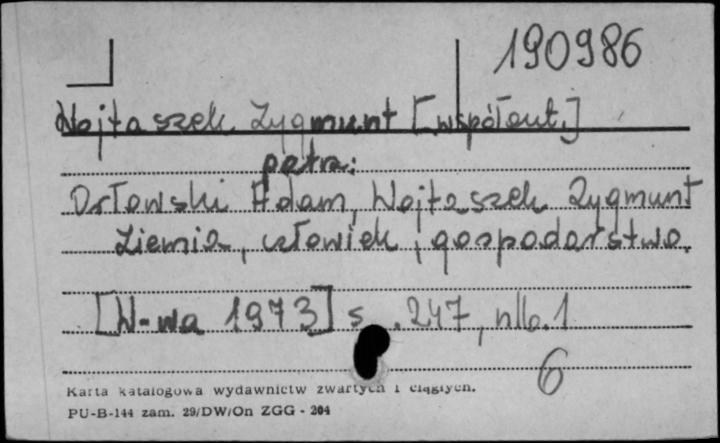 190986
Wojtaszek Zygmunt [współaut.]
patrz:
Orłowski Adam, Wojtaszek Zygmunt
Ziemia, człowiek, gospodarstwo.
[W-wa 1973] s. 247, nlb. 1
6
Karta katalogowa wydawnictw zwartych i ciągłych.
PU-B-144 zam. 29/DW/On ZGG - 204